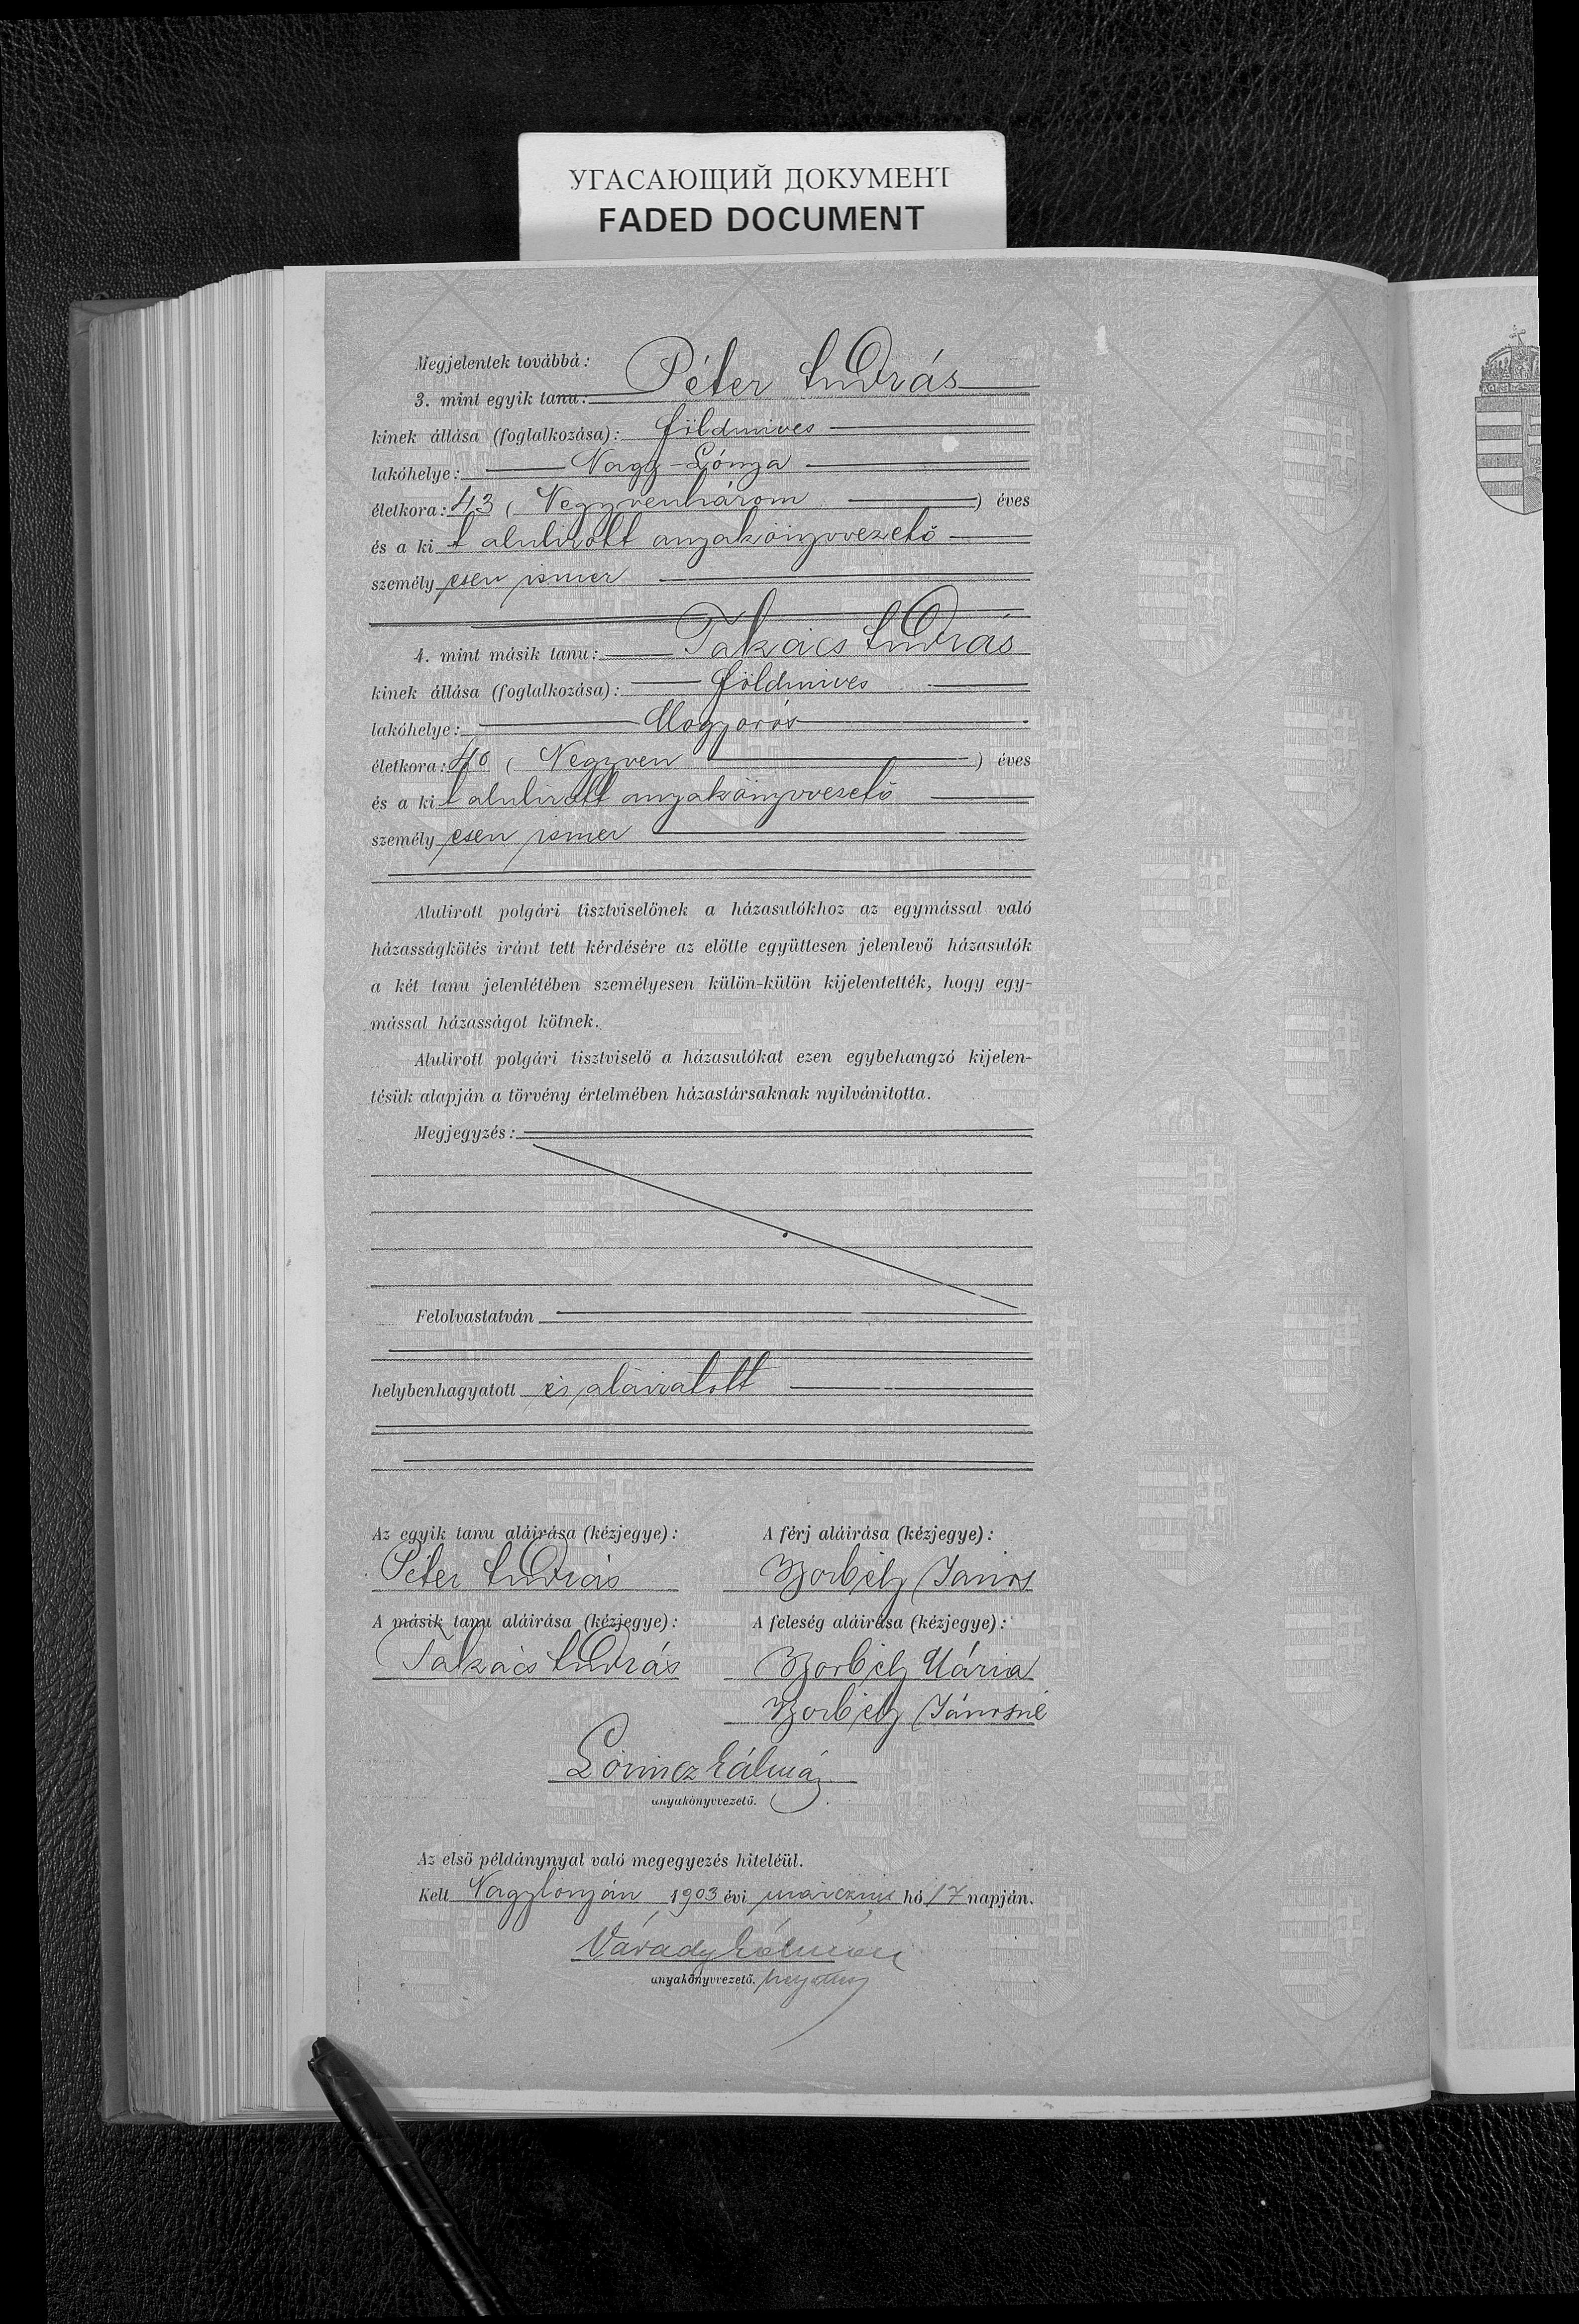 УГАСАЮЩИЙ ДОКУМЕНТ
FADED DOCUMENT
Megjelentek továbbá:
3. mint egyik tanu: Péter András
kinek állása (foglalkozása): földmíves
lakóhelye: Nagy-Lónya
életkora: 43 (Negyvenhárom) éves
és a kit alulirott anyakönyvvezető
személyesen ismer
4. mint másik tanu: Takács András
kinek állása (foglalkozása): földmíves
lakóhelye: Mogyorós
életkora: 40 (Negyven) éves
és a kit alulirott anyakönyvvezető
személyesen ismer
Alulirott polgári tisztviselőnek a házasulókhoz az egymással való
házasságkötés iránt tett kérdésére az előtte együttesen jelenlevő házasulók
a két tanu jelenlétében személyesen külön-külön kijelentették, hogy egy-
mással házasságot kötnek.
Alulirott polgári tisztviselő a házasulókat ezen egybehangzó kijelen-
tésük alapján a törvény értelmében házastársaknak nyilvánitotta.
Megjegyzés:
Felolvastatván
helybenhagyatott és aláiratott
Az egyik tanu aláirása (kézjegye): A férj aláirása (kézjegye):
Péter András Borbély János
A másik tanu aláirása (kézjegye): A feleség aláirása (kézjegye):
Takács András Borbély Mária
Borbély Jánosné
Lőrincz Kálmán
anyakönyvvezető.
Az első példánynyal való megegyezés hiteléül.
Kelt Nagylónyán, 1903 évi márczius hó 17 napján.
Várady Kálmán
anyakönyvvezető. helyettes